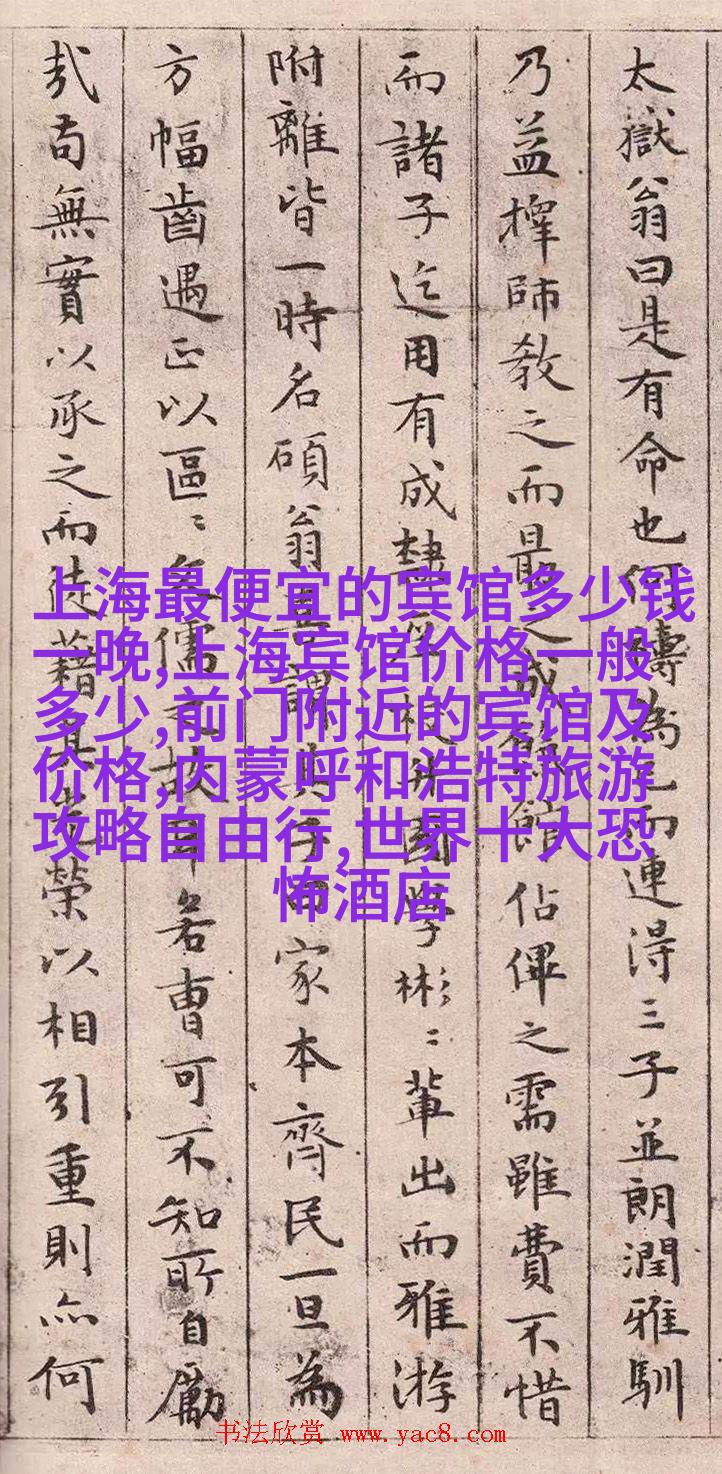 太嶽翁曰是有命也何為已而連淂三子並朗潤雅馴
乃益擇師教之而最之成館佔俾之需雖費不惜
而諸子迄用有成國學彬〻輩出而雅游
附離皆一時名碩翁喜謂其子曰家本齊民一旦為
方幅齒遇正以區〻儒故耳若曹可不知所自勵
哉苟無實以承之而徒藉其光榮以相引重則亦何
上海最便宜的宾馆多少钱
一晚,上海宾馆价格一般
多少,前门附近的宾馆及
价格,内蒙呼和浩特旅游
攻略自由行,世界十大恐
怖酒店
书法欣赏 www.yac8.com